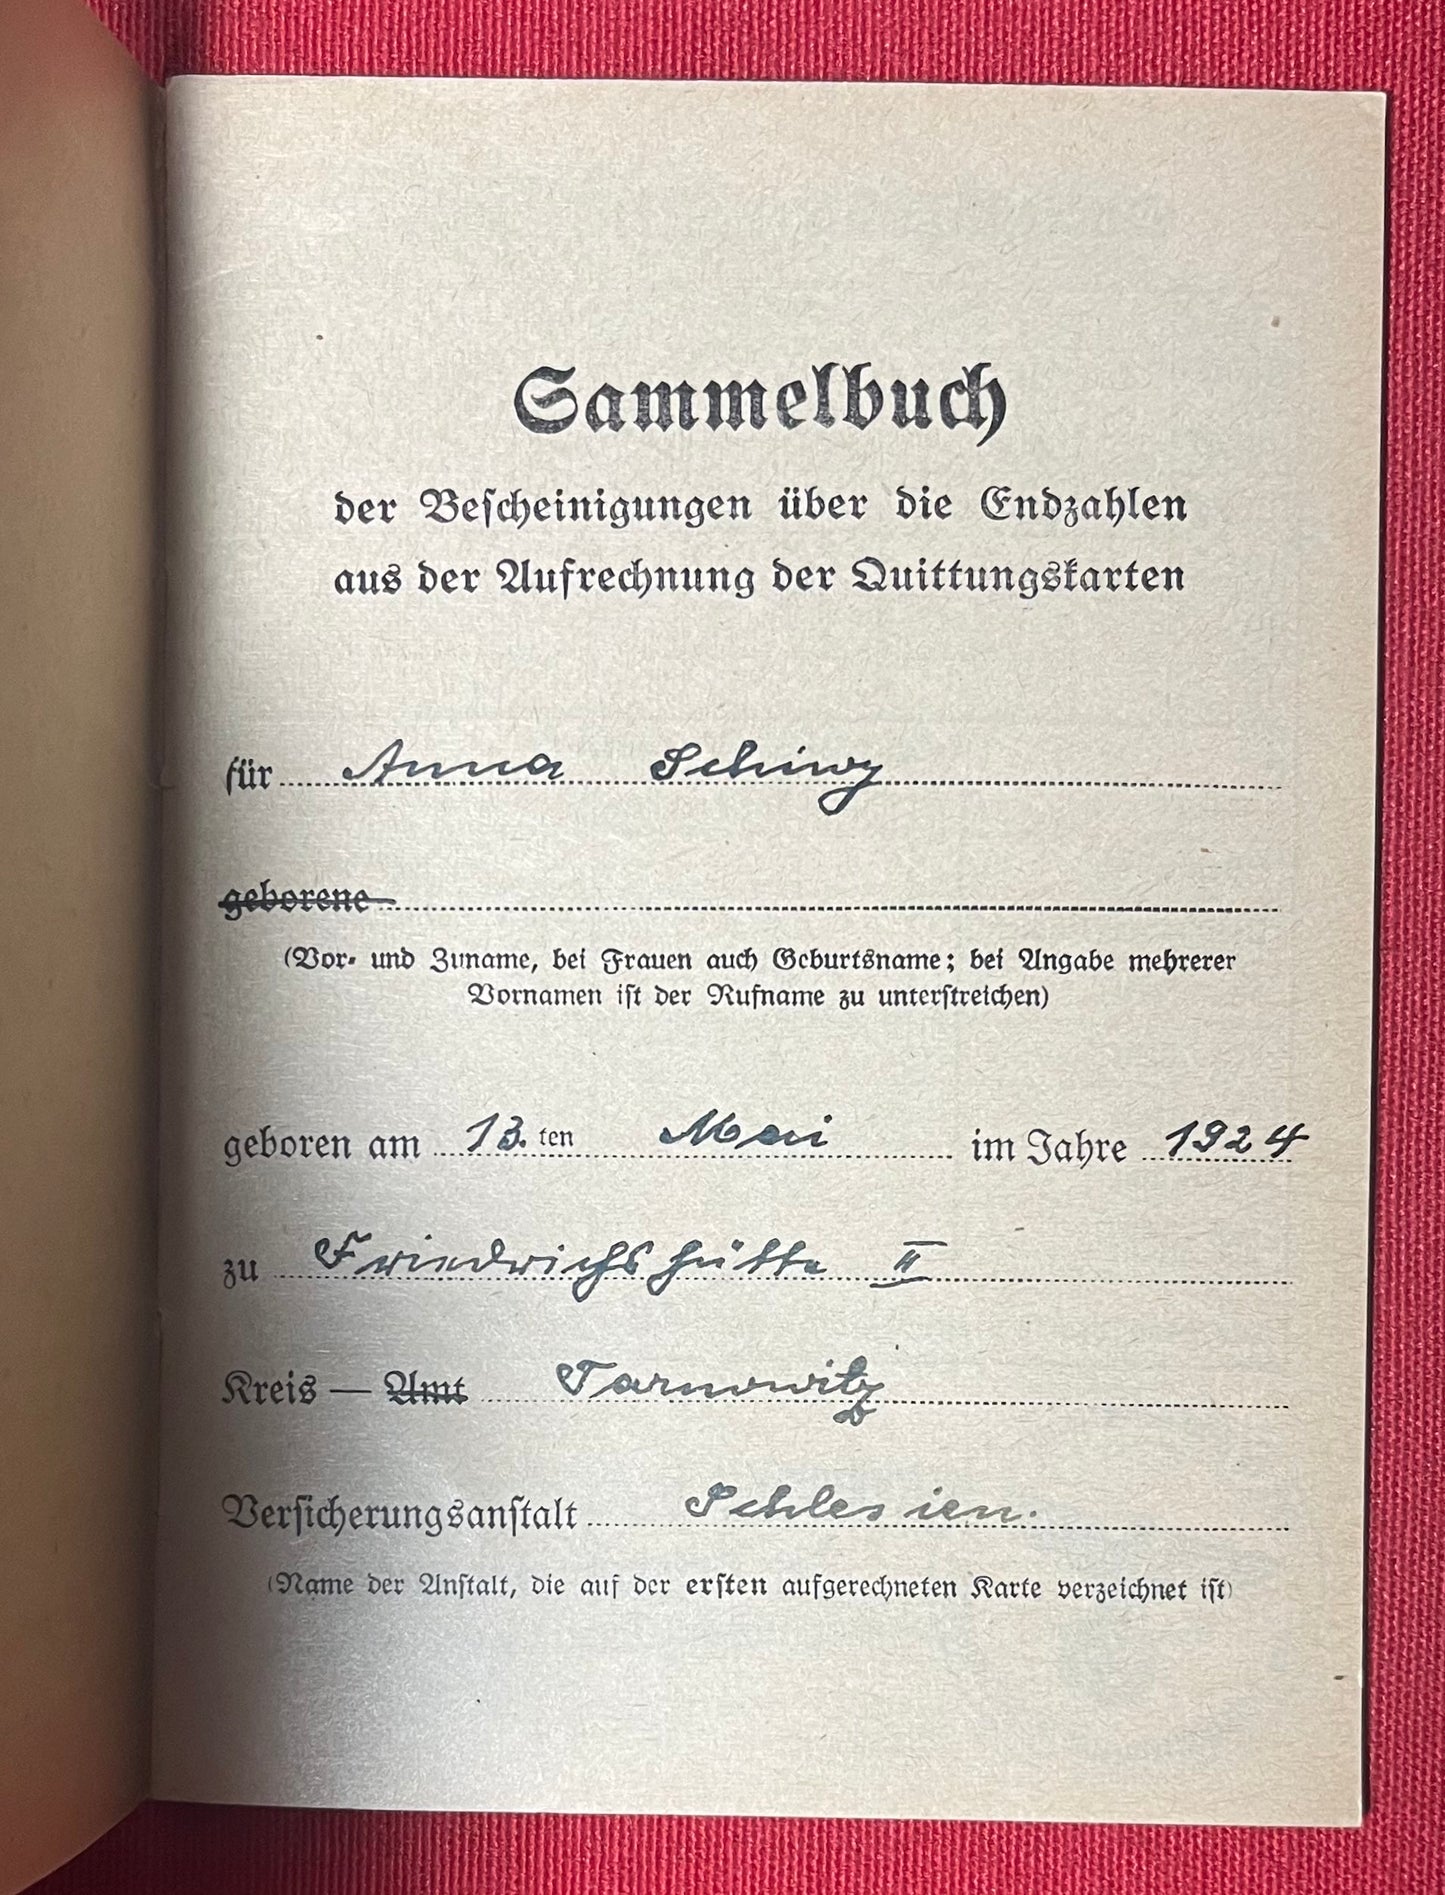 Sammelbuch
der Bescheinigungen über die Endzahlen
aus der Aufrechnung der Quittungskarten
für Anna Schiwy
geborene
(Vor- und Zuname, bei Frauen auch Geburtsname; bei Angabe mehrerer
Vornamen ist der Rufname zu unterstreichen)
geboren am 13. ten Mai im Jahre 1924
zu Friedrichshütte II
Kreis — Amt Tarnowitz
Versicherungsanstalt Schlesien.
(Name der Anstalt, die auf der ersten aufgerechneten Karte verzeichnet ist)